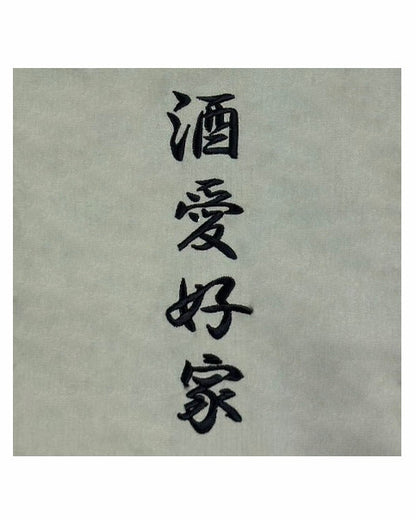 酒愛好家